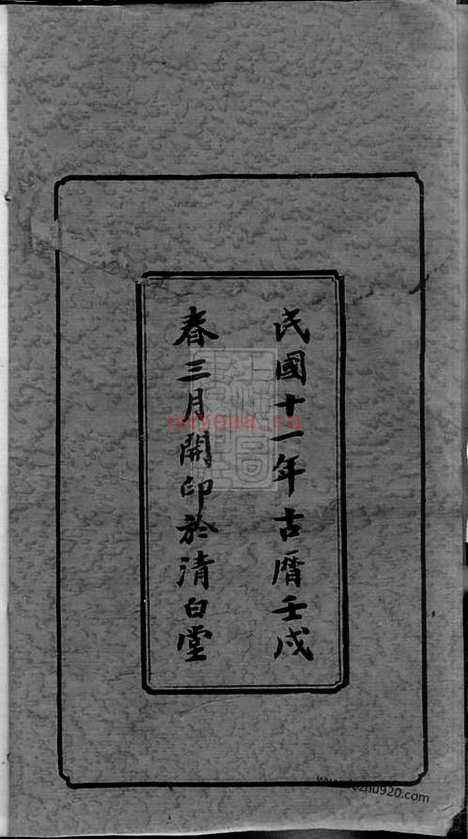 民國十一年古曆壬戌
春三月開印於清白堂
nayona.cn